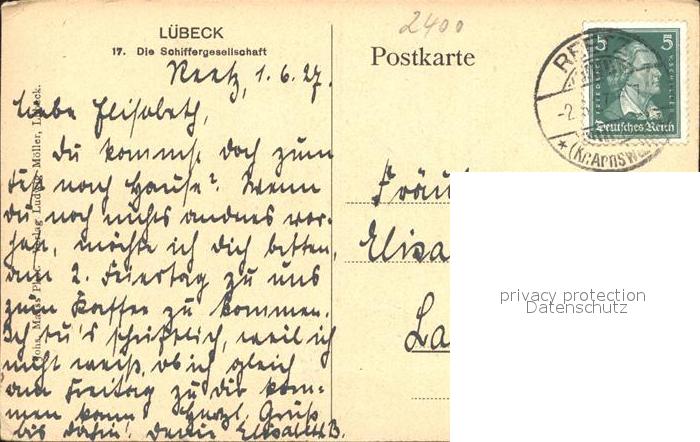 LÜBECK
17. Die Schiffergesellschaft
2400
Postkarte
Reetz, 1.6.27.
Liebe Elisabeth,
Du kommst doch zum
Fest nach Hause? Wenn
du noch nichts andres vor-
hast, möchte ich dich bitten,
am 2. Feiertag zu uns
zum Kaffee zu kommen.
Ich tu's schriftlich, weil ich
nicht weiß, ob ich gleich
am Freitag zu dir kom-
men kann. Herzl. Gruß
bis dahin! Deine Elisabeth B.
Johs. Verlag Ludwig Möller, Lübeck.
5 5
Deutsches Reich
FRIEDRICH
SCHILLER
REETZ
-2.
* (KR. ARNSW
Fräul
Elisa
La
privacy protection
Datenschutz